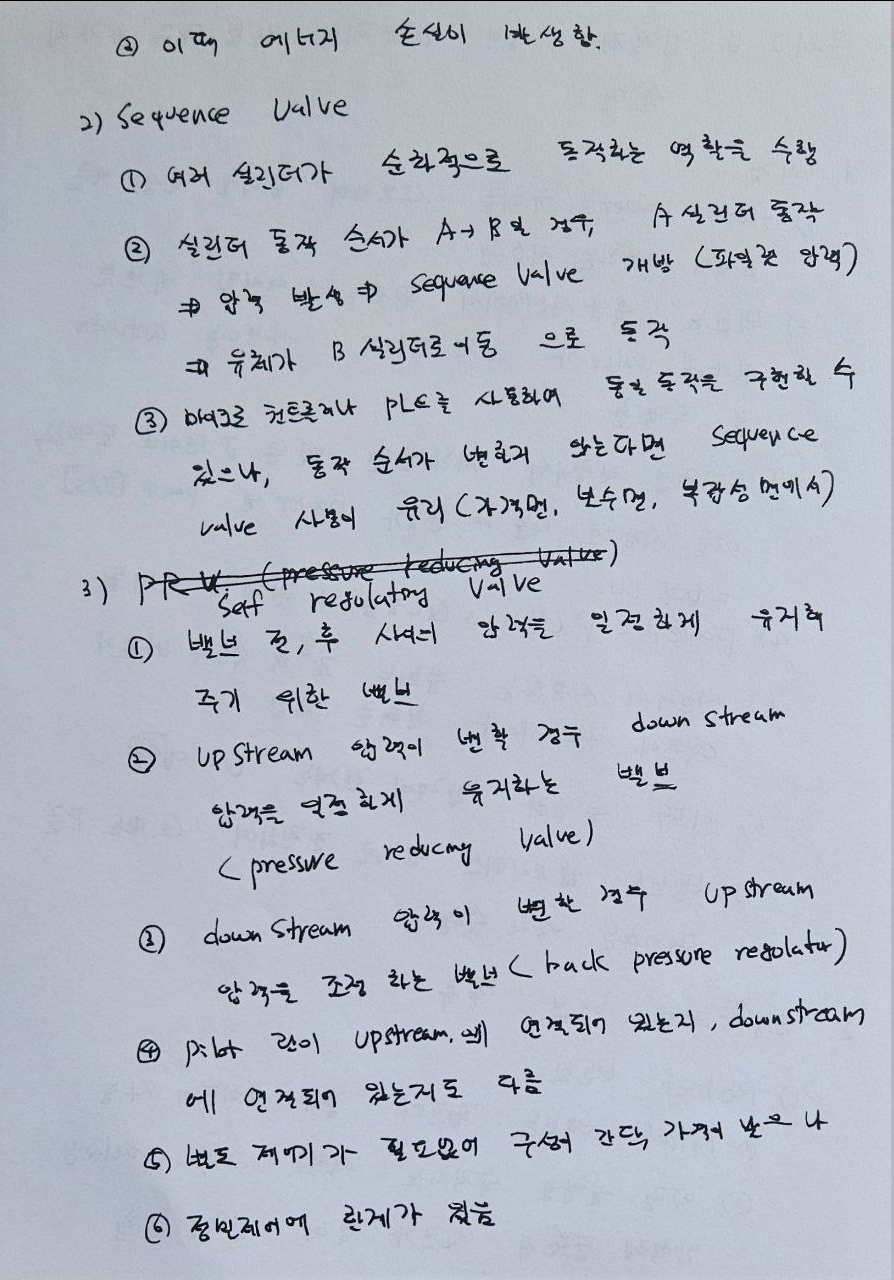 ② 이때 에너지 손실이 발생함.
2) Sequence Valve
① 여러 실린더가 순차적으로 동작하는 역할을 수행
② 실린더 동작 순서가 A→B일 경우, A실린더 동작
⇒ 압력 발생 ⇒ Sequence Valve 개방 (파일럿 압력)
⇒ 유체가 B 실린더로 이동 으로 동작
③ 마이크로 컨트롤러나 PLC를 사용하여 동일 동작을 구현할 수
있으나, 동작 순서가 변하지 않는다면 Sequence
valve 사용이 유리 (가격면, 보수면, 복잡성 면에서)
3) PRV. (pressure reducing Valve)
Self regulating Valve
① 밸브 전, 후 사이의 압력을 일정하게 유지해
주기 위한 밸브
② UpStream 압력이 변할 경우 down stream
압력을 일정하게 유지하는 밸브
(pressure reducing Valve)
③ down Stream 압력이 변할 경우 Upstream
압력을 조정 하는 밸브 (back pressure regulator)
④ pilot 란이 upstream.에 연결되어 있는지, downstream
에 연결되어 있는지도 다름
⑤ 별도 제어기가 필요없어 구성이 간단, 가격이 낮으나
⑥ 정밀제어에 한계가 있음